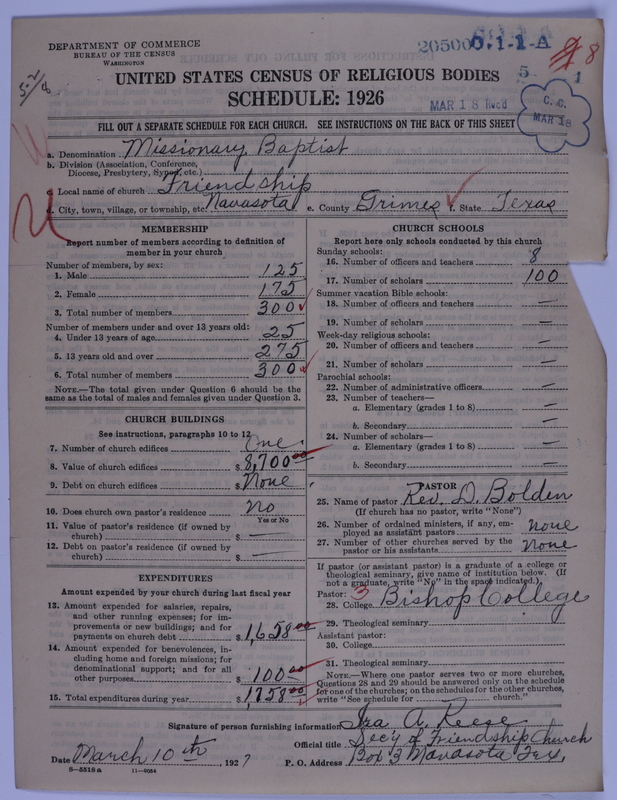 DEPARTMENT OF COMMERCE
BUREAU OF THE CENSUS
WASHINGTON
205000.1-1-A
8
5 1
5-2/8
UNITED STATES CENSUS OF RELIGIOUS BODIES
SCHEDULE: 1926
MAR 18 Recd
C. C.
MAR 18
FILL OUT A SEPARATE SCHEDULE FOR EACH CHURCH. SEE INSTRUCTIONS ON THE BACK OF THIS SHEET
a. Denomination Missionary Baptist
b. Division (Association, Conference,
Diocese, Presbytery, Synod, etc.)
c. Local name of church Friendship
d. City, town, village, or township, etc. Navasota e. County Grimes f. State Texas
MEMBERSHIP
Report number of members according to definition of
member in your church
Number of members, by sex:
1. Male 125
2. Female 175
3. Total number of members 300
Number of members under and over 13 years old:
4. Under 13 years of age 25
5. 13 years old and over 275
6. Total number of members 300
NOTE.—The total given under Question 6 should be the
same as the total of males and females given under Question 3.
CHURCH BUILDINGS
See instructions, paragraphs 10 to 12
7. Number of church edifices One
8. Value of church edifices $ 8,700.00
9. Debt on church edifices $ None
10. Does church own pastor's residence No
Yes or No
11. Value of pastor's residence (if owned by
church) $ —
12. Debt on pastor's residence (if owned by
church) $ —
EXPENDITURES
Amount expended by your church during last fiscal year
13. Amount expended for salaries, repairs,
and other running expenses; for im-
provements or new buildings; and for
payments on church debt $ 1,658.00
14. Amount expended for benevolences, in-
cluding home and foreign missions; for
denominational support; and for all
other purposes $ 100.00
15. Total expenditures during year $ 1758.00
CHURCH SCHOOLS
Report here only schools conducted by this church
Sunday schools:
16. Number of officers and teachers 8
17. Number of scholars 100
Summer vacation Bible schools:
18. Number of officers and teachers —
19. Number of scholars —
Week-day religious schools:
20. Number of officers and teachers —
21. Number of scholars —
Parochial schools:
22. Number of administrative officers —
23. Number of teachers—
a. Elementary (grades 1 to 8) —
b. Secondary —
24. Number of scholars—
a. Elementary (grades 1 to 8) —
b. Secondary —
PASTOR
25. Name of pastor Rev. D. Bolden
(If church has no pastor, write "None")
26. Number of ordained ministers, if any, em-
ployed as assistant pastors none
27. Number of other churches served by the
pastor or his assistants None
If pastor (or assistant pastor) is a graduate of a college or
theological seminary, give name of institution below. (If
not a graduate, write "No" in the space indicated.)
Pastor: 3
28. College Bishop College
29. Theological seminary
Assistant pastor:
30. College
31. Theological seminary
NOTE.—Where one pastor serves two or more churches,
Questions 28 and 29 should be answered only on the schedule
for one of the churches; on the schedules for the other churches,
write "See schedule for church."
Signature of person furnishing information Ira A. Reese
Official title Sec'y of Friendship Church
Date March 10th, 1927 P. O. Address Box 3 Navasota Tex.
8—5518 a 11—9064